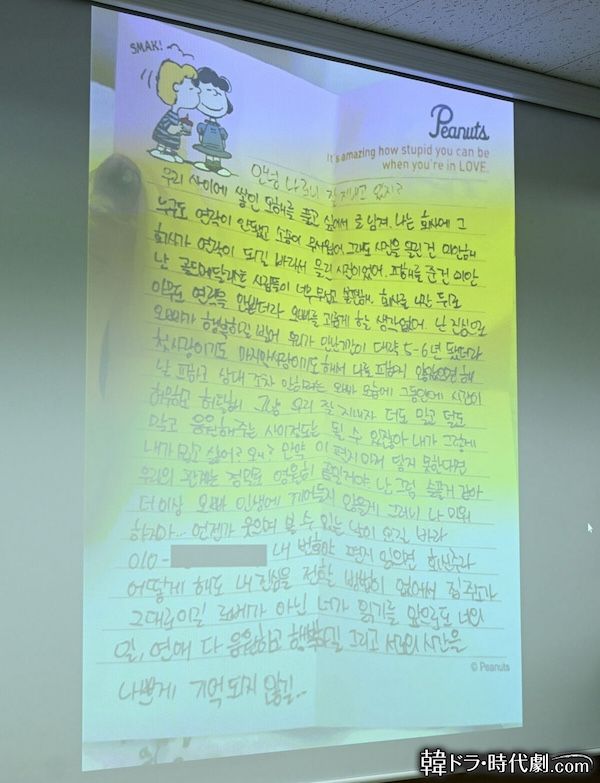 SMAK!
Peanuts
It's amazing how stupid you can be
when you're in LOVE.
안녕 나 잘 지내고 있지?
우리 사이에 쌓인 오해를 풀고 싶어서 글 남겨. 나는 회사에 그
누구도 연락이 안됐고 소송이 무서웠어 그래도 사진을 올린건 미안해
회사가 연락이 되길 바라서 올린 사진이었어. 피해를 준건 미안
난 골드메달리스트 사람들이 너무 무섭고 불편해. 회사를 나간 뒤로
아무도 연락을 안받더라 오빠를 괴롭게 할 생각없어. 난 진심으로
오빠가 행복하길 빌어 우리가 만난기간이 대략 5-6년 됐더라
첫사랑이기도 마지막사랑이기도해서 나를 피하지 않았으면 해
날 피하고 상대 조차 안하려는 오빠 모습에 그동안에 시간이
허무하고 허탈해 그냥 우리 잘 지내자 더도 말고 덜도
말고 응원해주는 사이정도는 될 수 있잖아 내가 그렇게
내가 밉고 싫어? 왜? 만약 이 편지마저 닿지 못한다면
우리의 관계는 정말로 영원히 끝일거야 난 그럼 슬플거 같아
더이상 오빠 인생에 끼어들지 않을게 그러니 나 미워
하지마... 언젠가 웃으며 볼 수 있는 날이 오길 바라
010- 내 번호야 편지 읽으면 회신주라
어떻게 해도 내 진심을 전할 방법이 없어서 집 주소가
그대로이길 아닌 너가 읽기를 앞으로도 너의
일, 연애 다 응원하고 행복하길 그리고 서로의 시간을
나쁘게 기억되지 않길...
© Peanuts
韓ドラ・時代劇.com